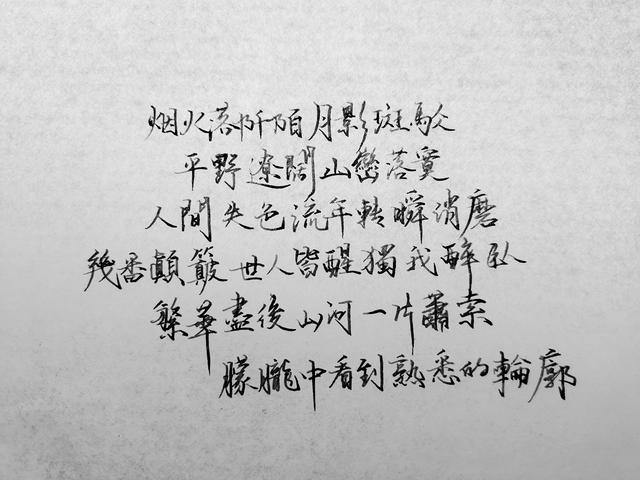 烟火落阡陌月影斑駁
平野遼闊山巒落寞
人間失色流年轉瞬消磨
幾番顛簸世人皆醒獨我醉臥
繁華盡後山河一片蕭索
朦朧中看到熟悉的輪廓